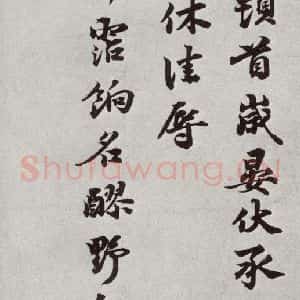 頓首歲晏伏承
休佳辱
霑餉名醪野
Shufawang.cn